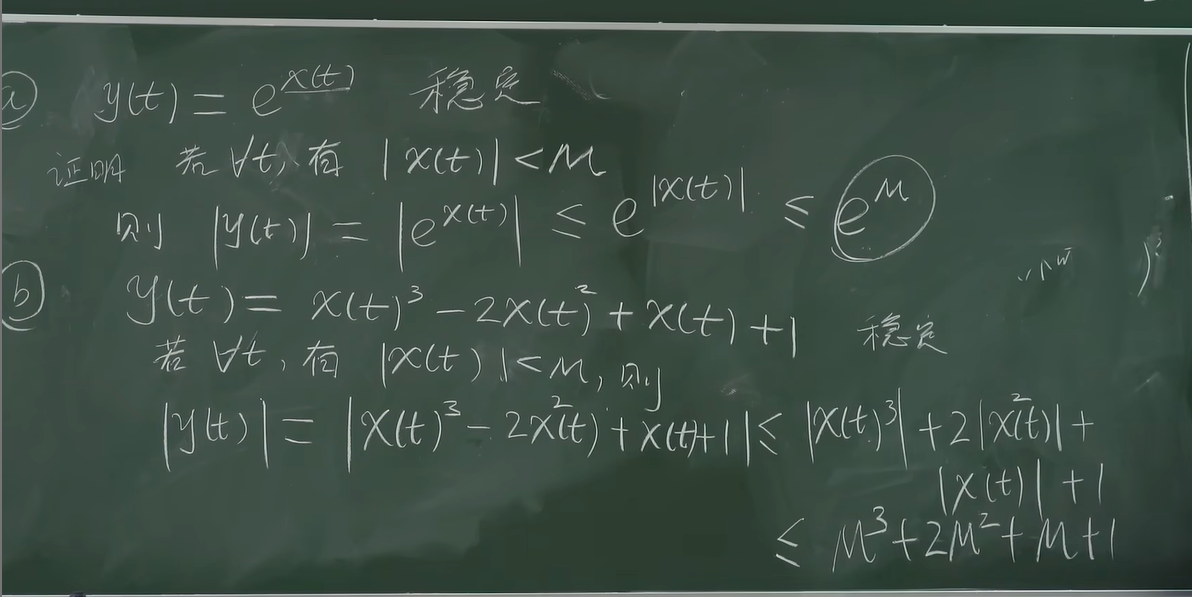 ⓐ y(t) = e^{x(t)} 稳定
证明 若 ∀t, 有 |x(t)| < M
则 |y(t)| = |e^{x(t)}| ≤ e^{|x(t)|} ≤ e^M
ⓑ y(t) = x(t)³ - 2x(t)² + x(t) + 1 稳定
若 ∀t, 有 |x(t)| < M, 则
|y(t)| = |x(t)³ - 2x²(t) + x(t) + 1| ≤ |x(t)³| + 2|x²(t)| +
|x(t)| + 1
≤ M³ + 2M² + M + 1